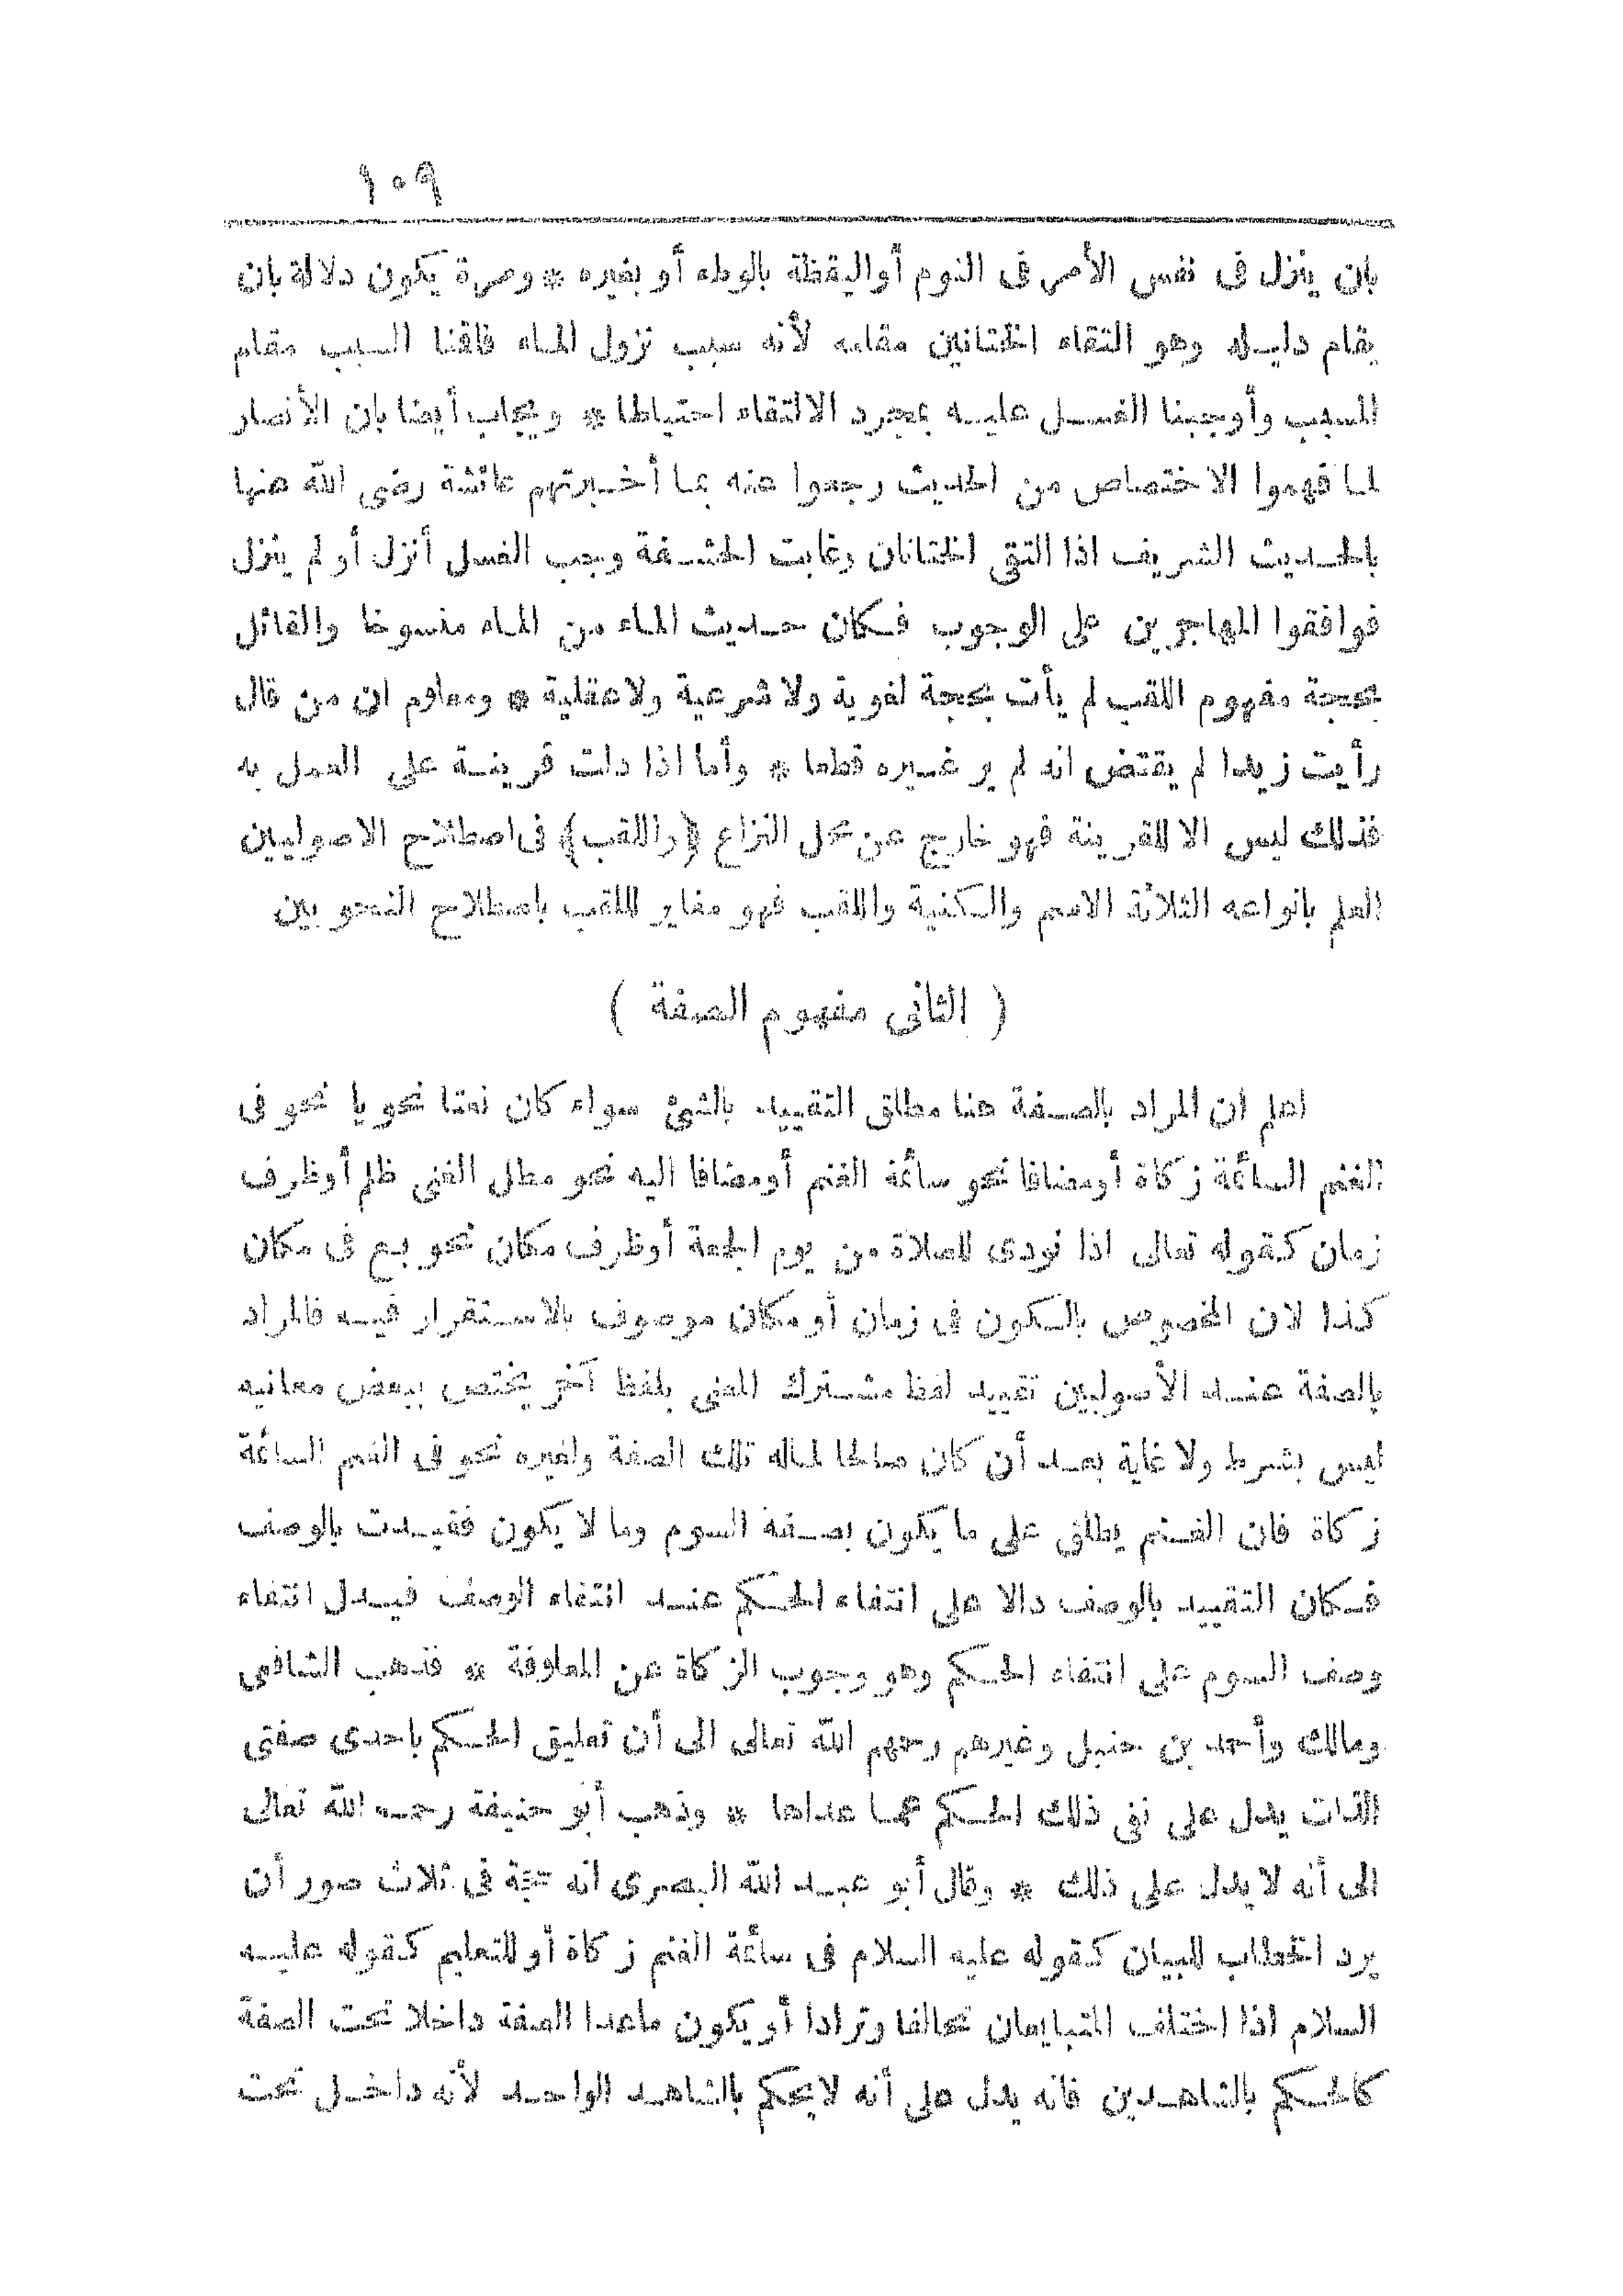 ١٠٩
بان ينزل فى نفس الأمر فى النوم أو اليقظة بالوطء أو بغيره * ومرة يكون دلالة بان
يقام دليله وهو التقاء الختانين مقامه لأنه سبب نزول الماء فاقنا السبب مقام
المسبب وأوجبنا الغسل عليه بمجرد الالتقاء احتياطا * ويجاب أيضا بان الأنصار
لما فهموا الاختصاص من الحديث رجعوا عنه بما أخبرتهم عائشة رضى الله عنها
بالحديث الشريف اذا التقى الختانان وغابت الحشفة وجب الغسل أنزل أو لم ينزل
فوافقوا المهاجرين على الوجوب فكان حديث الماء من الماء منسوخا والقائل
بحجة مفهوم اللقب لم يأت بحجة لغوية ولا شرعية ولا عقلية * ومعلوم ان من قال
رأيت زيدا لم يقتض انه لم ير غيره قطعا * وأما اذا دلت قرينة على العمل به
فذلك ليس الا للقرينة فهو خارج عن محل النزاع ﴿واللقب﴾ فى اصطلاح الاصوليين
العلم بانواعه الثلاثة الاسم والكنية واللقب فهو مغاير للقب باصطلاح النحويين
( الثانى مفهوم الصفة )
اعلم ان المراد بالصفة هنا مطلق التقييد بالشئ سواء كان نعتا نحويا نحو فى
الغنم السائمة زكاة أو مضافا نحو سائمة الغنم أو مضافا اليه نحو مطل الغنى ظلم أو ظرف
زمان كقوله تعالى اذا نودى للصلاة من يوم الجمعة أو ظرف مكان نحو بع فى مكان
كذا لان المخصوص بالكون فى زمان أو مكان موصوف بالاستقرار فيه فالمراد
بالصفة عند الأصوليين تقييد لفظ مشترك المعنى بلفظ آخر يختص ببعض معانيه
ليس بشرط ولا غاية بعد أن كان صالحا لماله تلك الصفة ولغيره نحو فى الغنم السائمة
زكاة فان الغنم يطلق على ما يكون بصفة السوم وما لا يكون فقيدت بالوصف
فكان التقييد بالوصف دالا على انتفاء الحكم عند انتفاء الوصف فيدل انتفاء
وصف السوم على انتفاء الحكم وهو وجوب الزكاة عن المعلوفة * فذهب الشافعى
ومالك وأحمد بن حنبل وغيرهم رحمهم الله تعالى الى أن تعليق الحكم باحدى صفتى
الذات يدل على نفى ذلك الحكم عما عداها * وذهب أبو حنيفة رحمه الله تعالى
الى أنه لا يدل على ذلك * وقال أبو عبد الله البصرى انه حجة فى ثلاث صور أن
يرد الخطاب للبيان كقوله عليه السلام فى سائمة الغنم زكاة أو للتعليم كقوله عليه
السلام اذا اختلف المتبايعان تحالفا وترادا أو يكون ماعدا الصفة داخلا تحت الصفة
كالحكم بالشاهدين فانه يدل على أنه لا يحكم بالشاهد الواحد لأنه داخل تحت